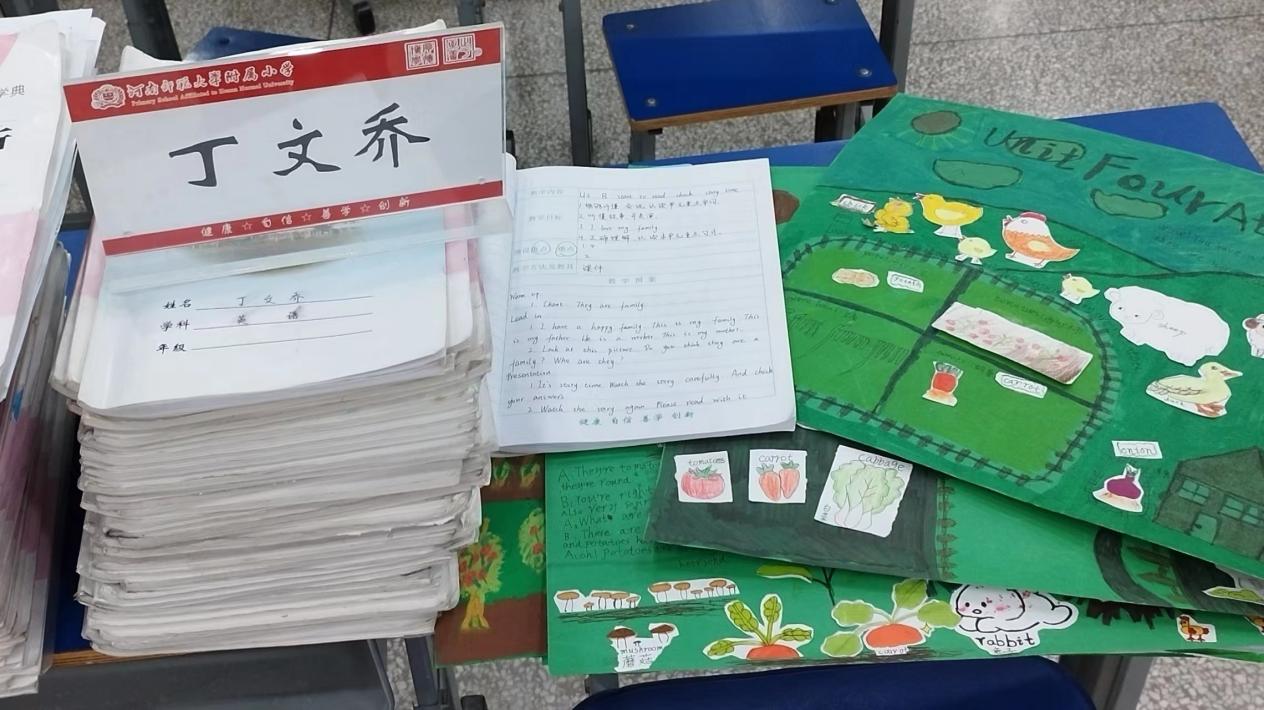 河南师范大学附属小学
Primary School Affiliated to Henan Normal University
丁文乔
健康 ☆ 自信 ☆ 善学 ☆ 创新
姓名 丁文乔
学科 英语
年级
教学内容
教学目标
1. I love my family
教学方法及教具 课件
教学图案
Warm up
1. Chant. They are family
Lead in
1. I have a happy family. This is my family This
is my father. He is a worker. This is my mother.
2. Look at this picture. Do you think they are a
family? Who are they?
Presentation
1. It's story time. Watch the story carefully. And check
your answers
2. Watch the story again. Please read with it
健康 自信 善学 创新
Unit Four At
chick
potato
carrot
sheep
duck
onion
tomatoes
carrot
cabbage
A. They're tomato
they're round
B. You're right
also very
A. What are
B. There are
and potatoes
A. oh! Potatoes
mushroom
蘑菇
carrot
rabbit